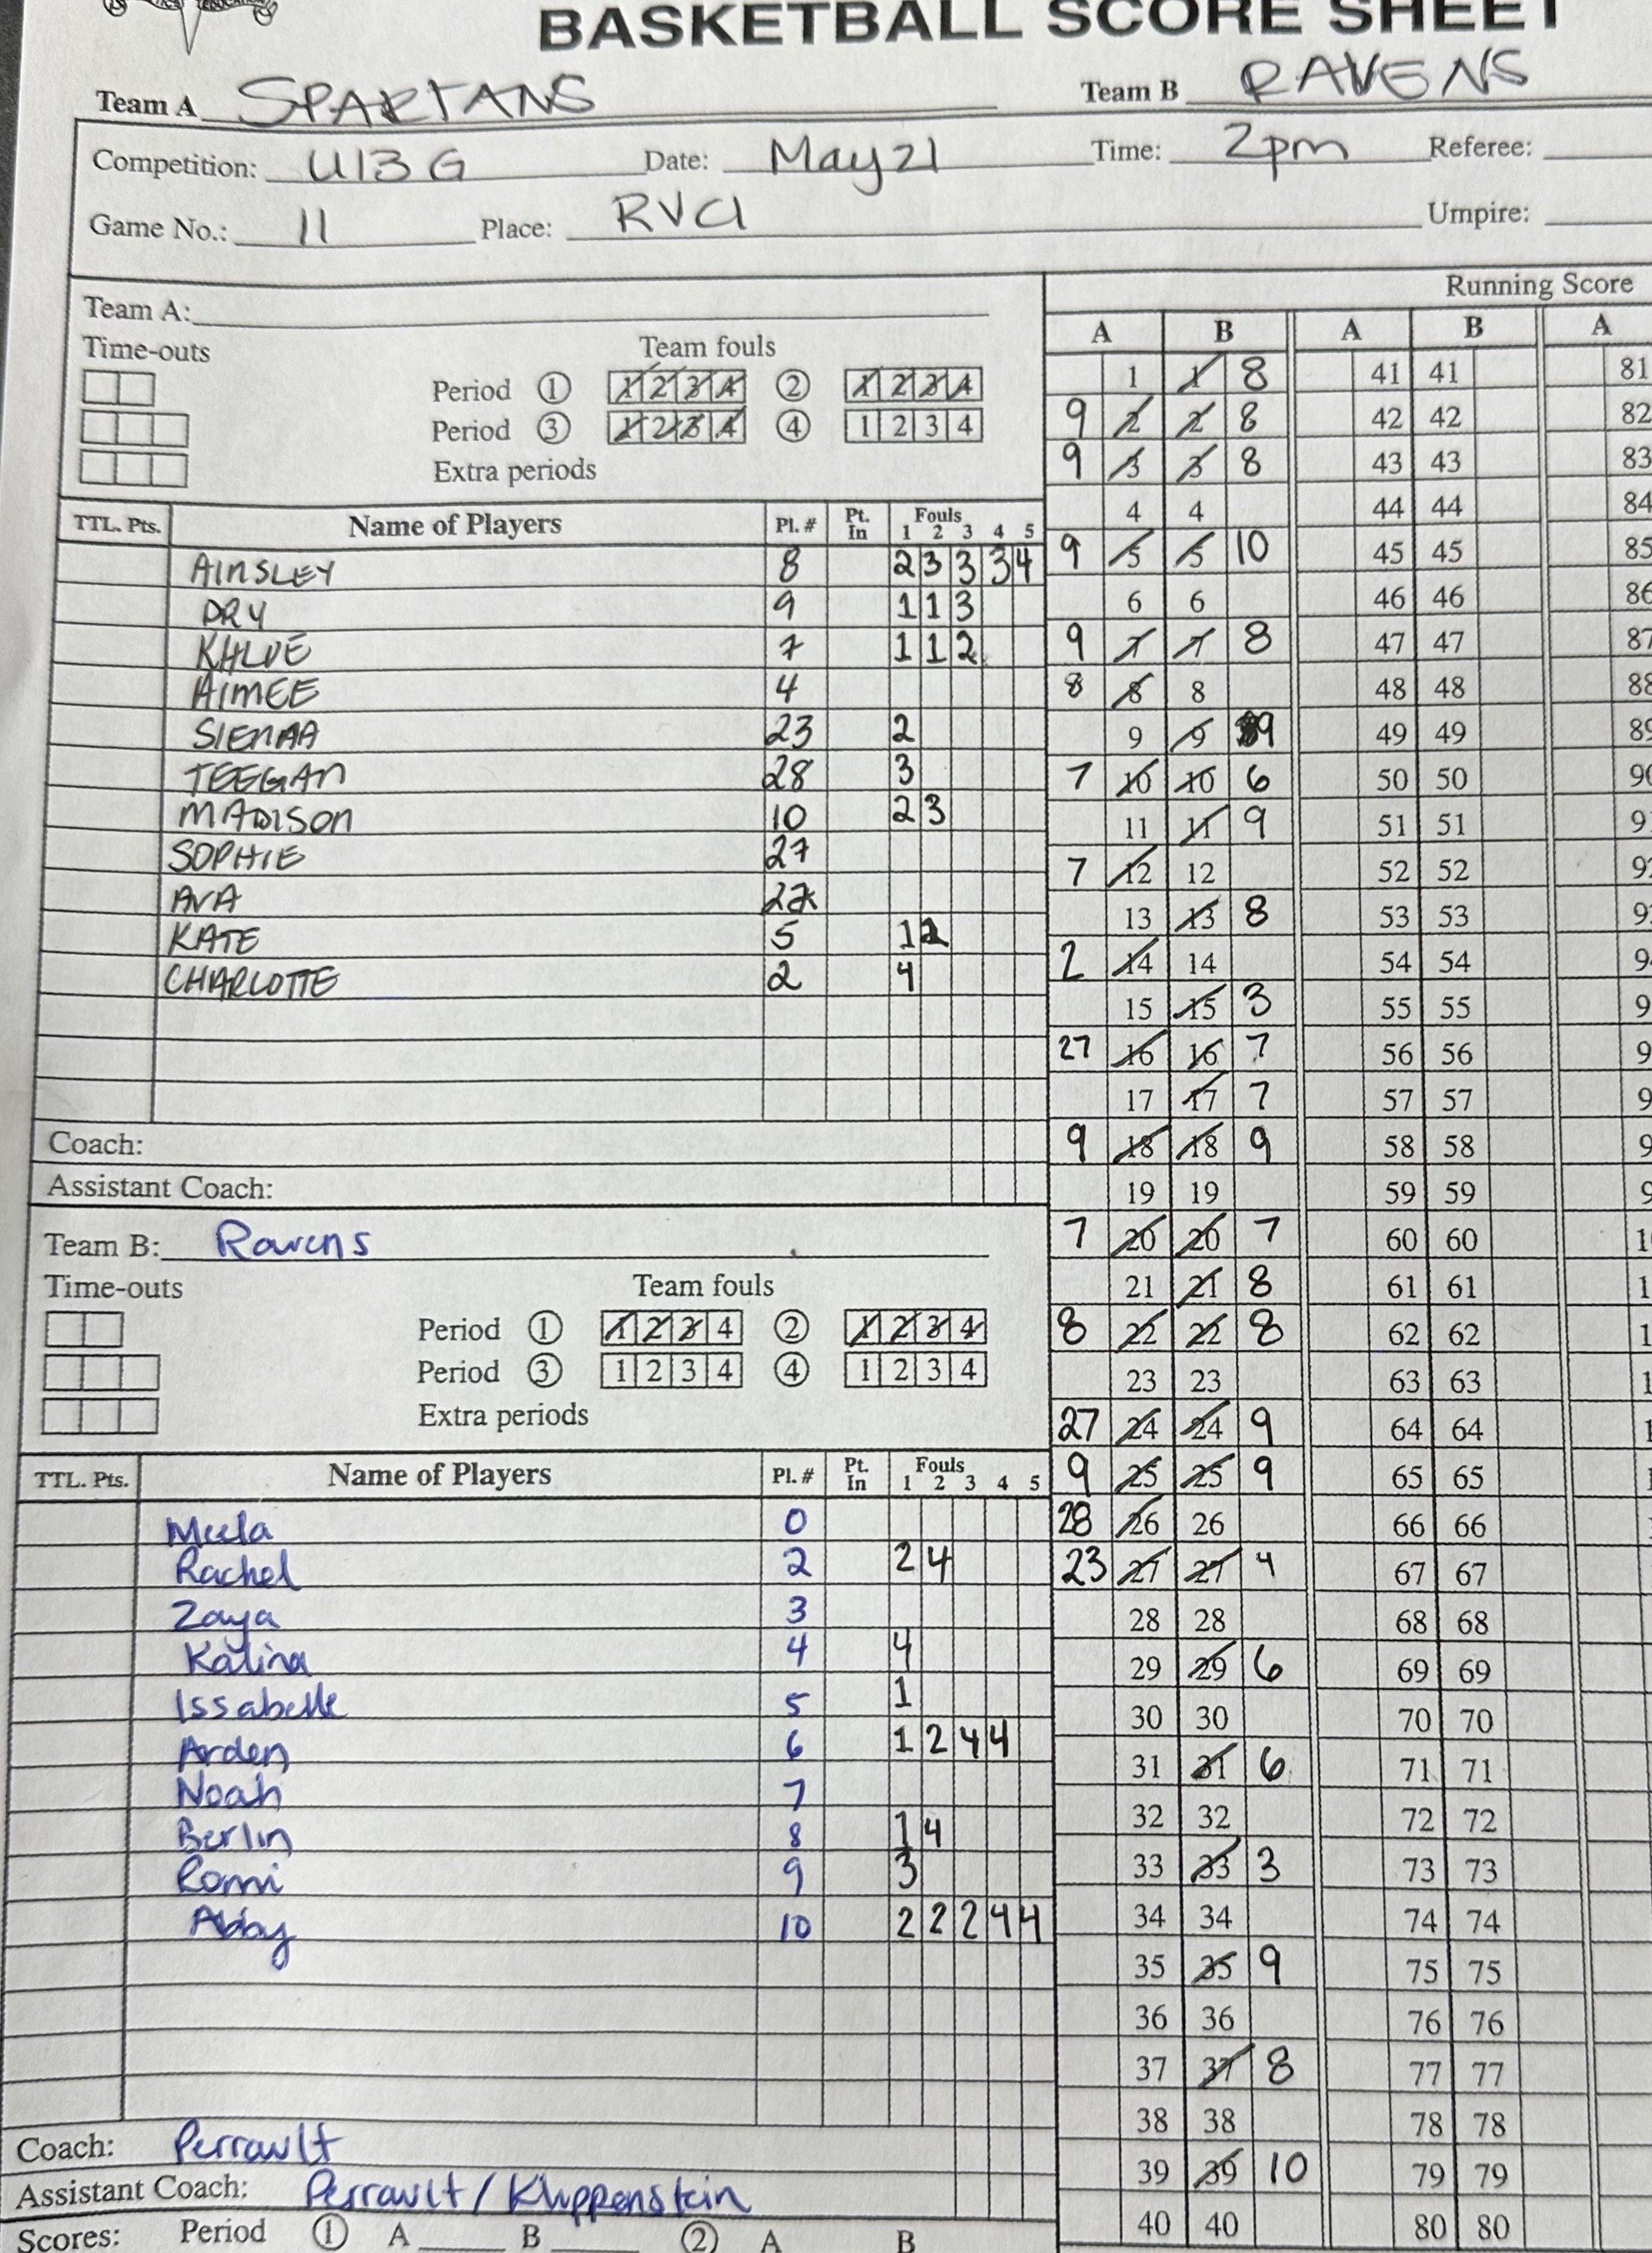 BASKETBALL SCORE SHEET
Team A SPARTANS Team B RAVENS
Competition: U13 G Date: May 21 Time: 2pm Referee:
Game No.: 11 Place: RVCI Umpire:
Team A:
Time-outs Team fouls
Period 1 1 2 3 4 2 1 2 3 4
Period 3 1 2 3 4 4 1 2 3 4
Extra periods
TTL. Pts. Name of Players Pl. # Pt. In Fouls 1 2 3 4 5
AINSLEY 8 2 3 3 3 4
DRY 9 1 1 3
KHLOE 7 1 1 2
AIMEE 4
SIENAA 23 2
TEEGAN 28 3
MADISON 10 2 3
SOPHIE 27
AVA
KATE 5 1 2
CHARLOTTE 2 4
Coach:
Assistant Coach:
Team B: Ravens
Time-outs Team fouls
Period 1 1 2 3 4 2 1 2 3 4
Period 3 1 2 3 4 4 1 2 3 4
Extra periods
TTL. Pts. Name of Players Pl. # Pt. In Fouls 1 2 3 4 5
Meela 0
Rachel 2 2 4
Zaya 3
Kalina 4 4
Issabelle 5 1
Arden 6 1 2 4 4
Noah 7
Berlin 8 1 4
Romi 9 3
Abby 10 2 2 2 4 4
Coach: Perrault
Assistant Coach: Perrault / Klippenstein
Scores: Period 1 A B 2 A B
Running Score
A B A B A
1 1 8 41 41 81
9 2 2 8 42 42 82
9 3 3 8 43 43 83
4 4 44 44 84
9 5 5 10 45 45 85
6 6 46 46 86
9 7 7 8 47 47 87
8 8 8 48 48 88
9 9 9 49 49 89
7 10 10 6 50 50 90
11 11 9 51 51
7 12 12 52 52
13 13 8 53 53
2 14 14 54 54
15 15 3 55 55
27 16 16 7 56 56
17 17 7 57 57
9 18 18 9 58 58
19 19 59 59
7 20 20 7 60 60
21 21 8 61 61
8 22 22 8 62 62
23 23 63 63
27 24 24 9 64 64
9 25 25 9 65 65
28 26 26 66 66
23 27 27 4 67 67
28 28 68 68
29 29 6 69 69
30 30 70 70
31 31 6 71 71
32 32 72 72
33 33 3 73 73
34 34 74 74
35 35 9 75 75
36 36 76 76
37 37 8 77 77
38 38 78 78
39 39 10 79 79
40 40 80 80